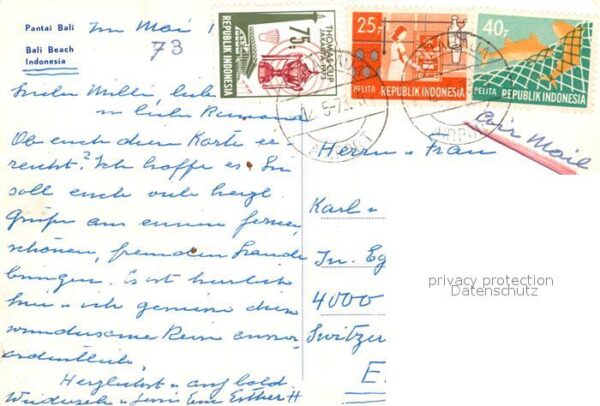 Pantai Bali
Bali Beach
Indonesia
Im Mai
73
75,-
REPUBLIK INDONESIA
THOMAS CUP
25,-
PELITA REPUBLIK INDONESIA
40,-
PELITA REPUBLIK INDONESIA
Air Mail
liebe
Ob euch diese Karte er-
reicht? Ich hoffe es. Sie
soll euch viele herzl.
Grüsse aus einem fernen,
schönen, fremden Lande
bringen. Es ist herrlich
hier - ich geniesse diese
wundersame Reise ausser-
ordentlich.
Herzlichst - auf bald
Esther H
Herrn u Frau
Karl u
In. Eg
4000
Switzer
E
privacy protection
Datenschutz